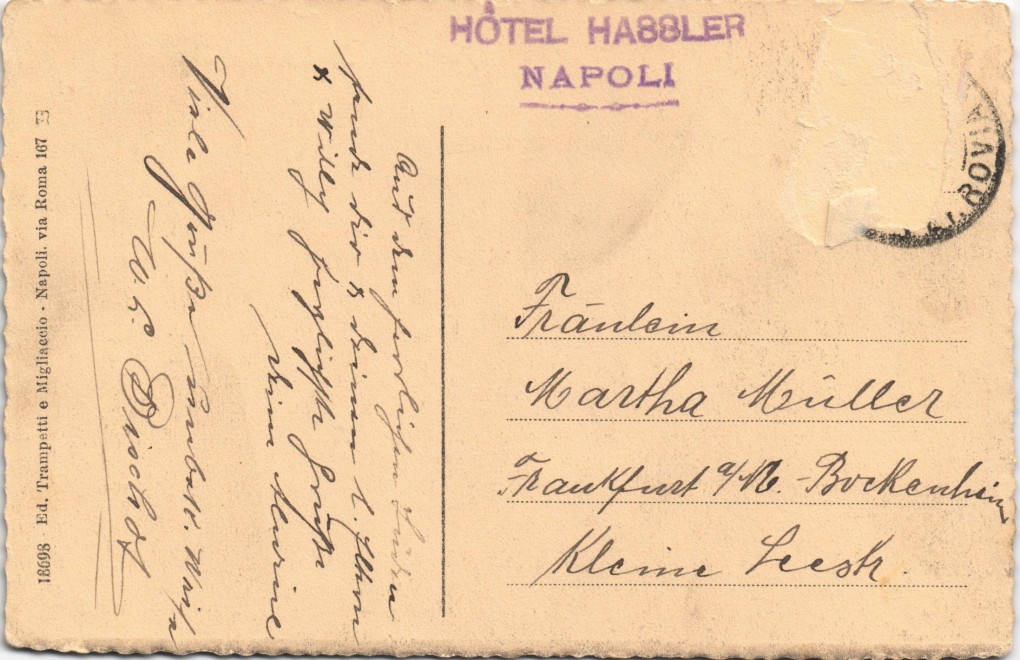 HÔTEL HASSLER
NAPOLI
18698 - Ed. Trampetti e Migliaccio - Napoli. via Roma 167
Aus dem herrlichen Süden
sende dir & deinen l. Eltern
& Willy herzlichste Grüße
Viele Grüße
Bischof
ROVIA
Fräulein
Martha Müller
Frankfurt a/M. - Bockenheim
Kleine Seestr.